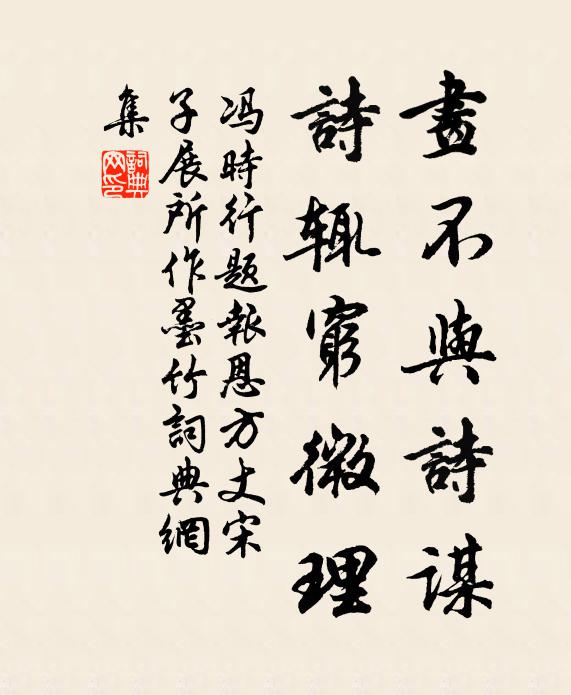 畫不與詩謀
詩辄窮微理
冯時行题報恩方丈宋
子展所作墨竹詞典網
集
詞典网印